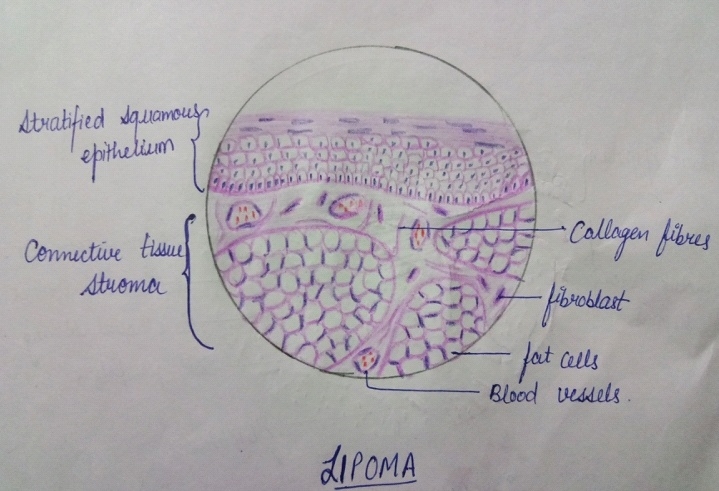 Stratified Squamous
epithelium
Connective tissue
Stroma
Collagen fibres
fibroblast
fat cells
Blood vessels.
LIPOMA